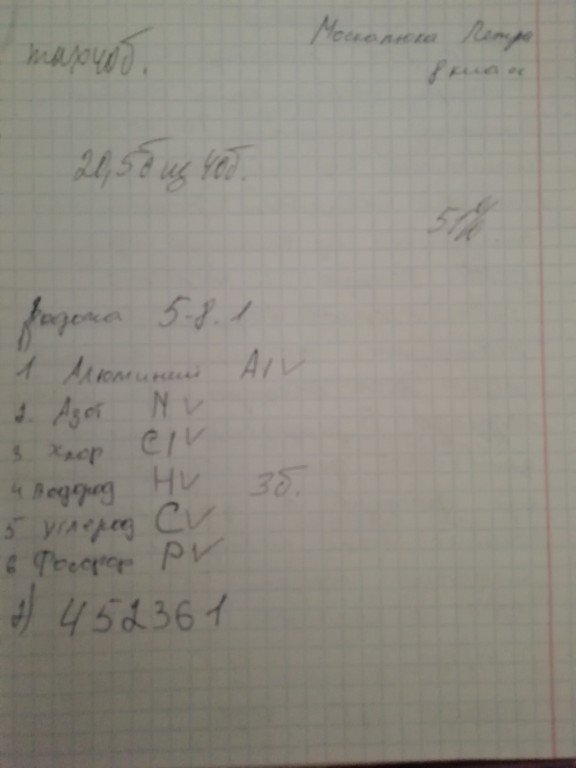 max 40б.
Москалюка Петра
8 клас
20,5б из 40б.
51%
Задача 5-8.1
1 Алюминий Al ✓
2. Азот N ✓
3 Хлор Cl ✓
4 водород H ✓ 3б.
5 углерод C ✓
6 Фосфор P ✓
2) 452361